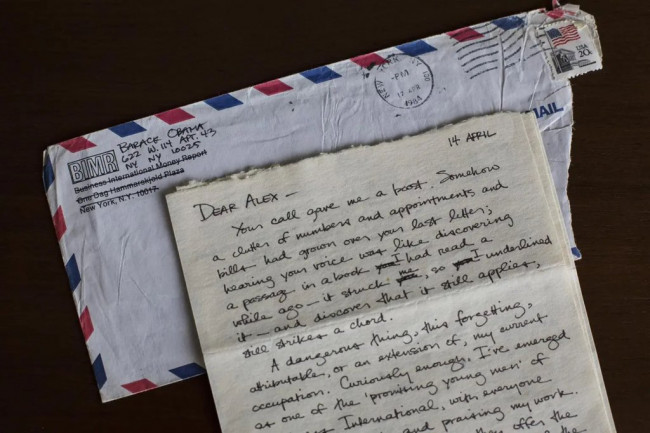 BARACK OBAMA
622 W. 114 APT. 43
NY NY 10025
BIMR
Business International Money Report
One Dag Hammarskjold Plaza
New York, N.Y. 10017
NEW YORK NY
PM
17 APR
1984
USA
20c
MAIL
14 APRIL
DEAR ALEX —
Your call gave me a boost. Somehow
a clutter of numbers and appointments and
bills had grown over your last letter;
hearing your voice was like discovering
a passage in a book I had read a
while ago — it struck me, so I underlined
it — and discover that it still applies,
still strikes a chord.
A dangerous thing, this forgetting,
attributable, or an extension of, my current
occupation. Curiously enough, I've emerged
as one of the 'promising young men' of
International, with everyone
and praising my work.
they offer the
the